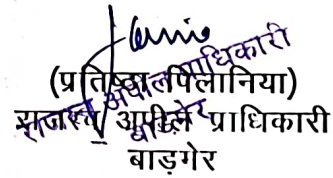 (प्रतिष्ठा पिलानिया)
राजस्व अपील प्राधिकारी
राजस्व अपील प्राधिकारी
बाड़मेर
बाड़गेर